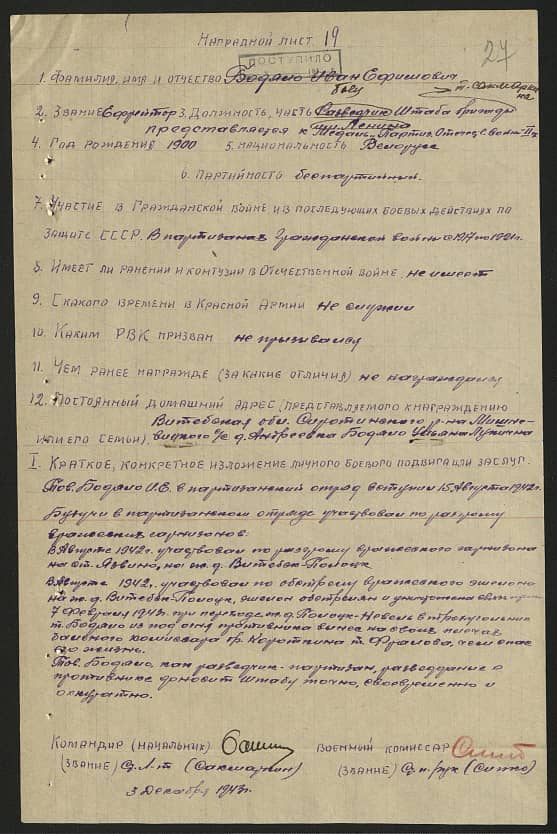 Наградной лист 19
27
ПОСТУПИЛО
1. Фамилия, имя и отчество Бодяло Иван Ефимович
2. Звание Ефрейтор 3. Должность, часть Разведчик Штаба бригады
им. Ленина
представляется к Медаль „Партиз. Отечес. Войны" II ст
4. Год рождения 1900 5. национальность Белорус
6. партийность беспартийный.
7. Участие в Гражданской войне и в последующих боевых действиях по
защите СССР. В партизанах Гражданской войны с 1917 по 1921 г.
8. Имеет ли ранении и контузии в Отечественной войне, не имеет
9. С какого времени в Красной Армии не служил
10. Каким РВК призван не призывался
11. Чем ранее награжде (за какие отличия) не награждался
12. Постоянный домашний адрес (представляемого к награждению
Витебская обл. Сиротинского р-на Мишне-
или его семьи). вицкого с/с д. Андреевка Бодяло Ульяна Лукинична
I. Краткое, конкретное изложение личного боевого подвига или заслуг.
Тов. Бодяло И.Е. в партизанский отряд вступил 15 Августа 1942 г.
Будучи в партизанском отряде участвовал по разгрому
вражеских гарнизонов.
В Августе 1942 г. участвовал по разгрому вражеского гарнизона
на ст. Язвино, на ж.д. Витебск-Полоцк
В Августе 1942 г. участвовал по обстрелу вражеского эшелона
на ж.д. Витебск-Полоцк, эшелон обстрелян и уничтожена
7 Февраля 1943 г. при переходе ж.д. Полоцк-Невель в треугольнике
т. Бодяло из под огня противника вынес на своих плечах
комиссара бр. Короткина т. Фролова, чем спас
его жизнь.
Тов. Бодяло, как разведчик-партизан, разведданные о
противнике доносит Штабу точно, своевременно и
аккуратно.
Командир (начальник) Военный комиссар
(звание) Ст. Л-т (Сакмаркин) (звание) Ст. п. рук (Ситко)
3 Декабря 1943 г.